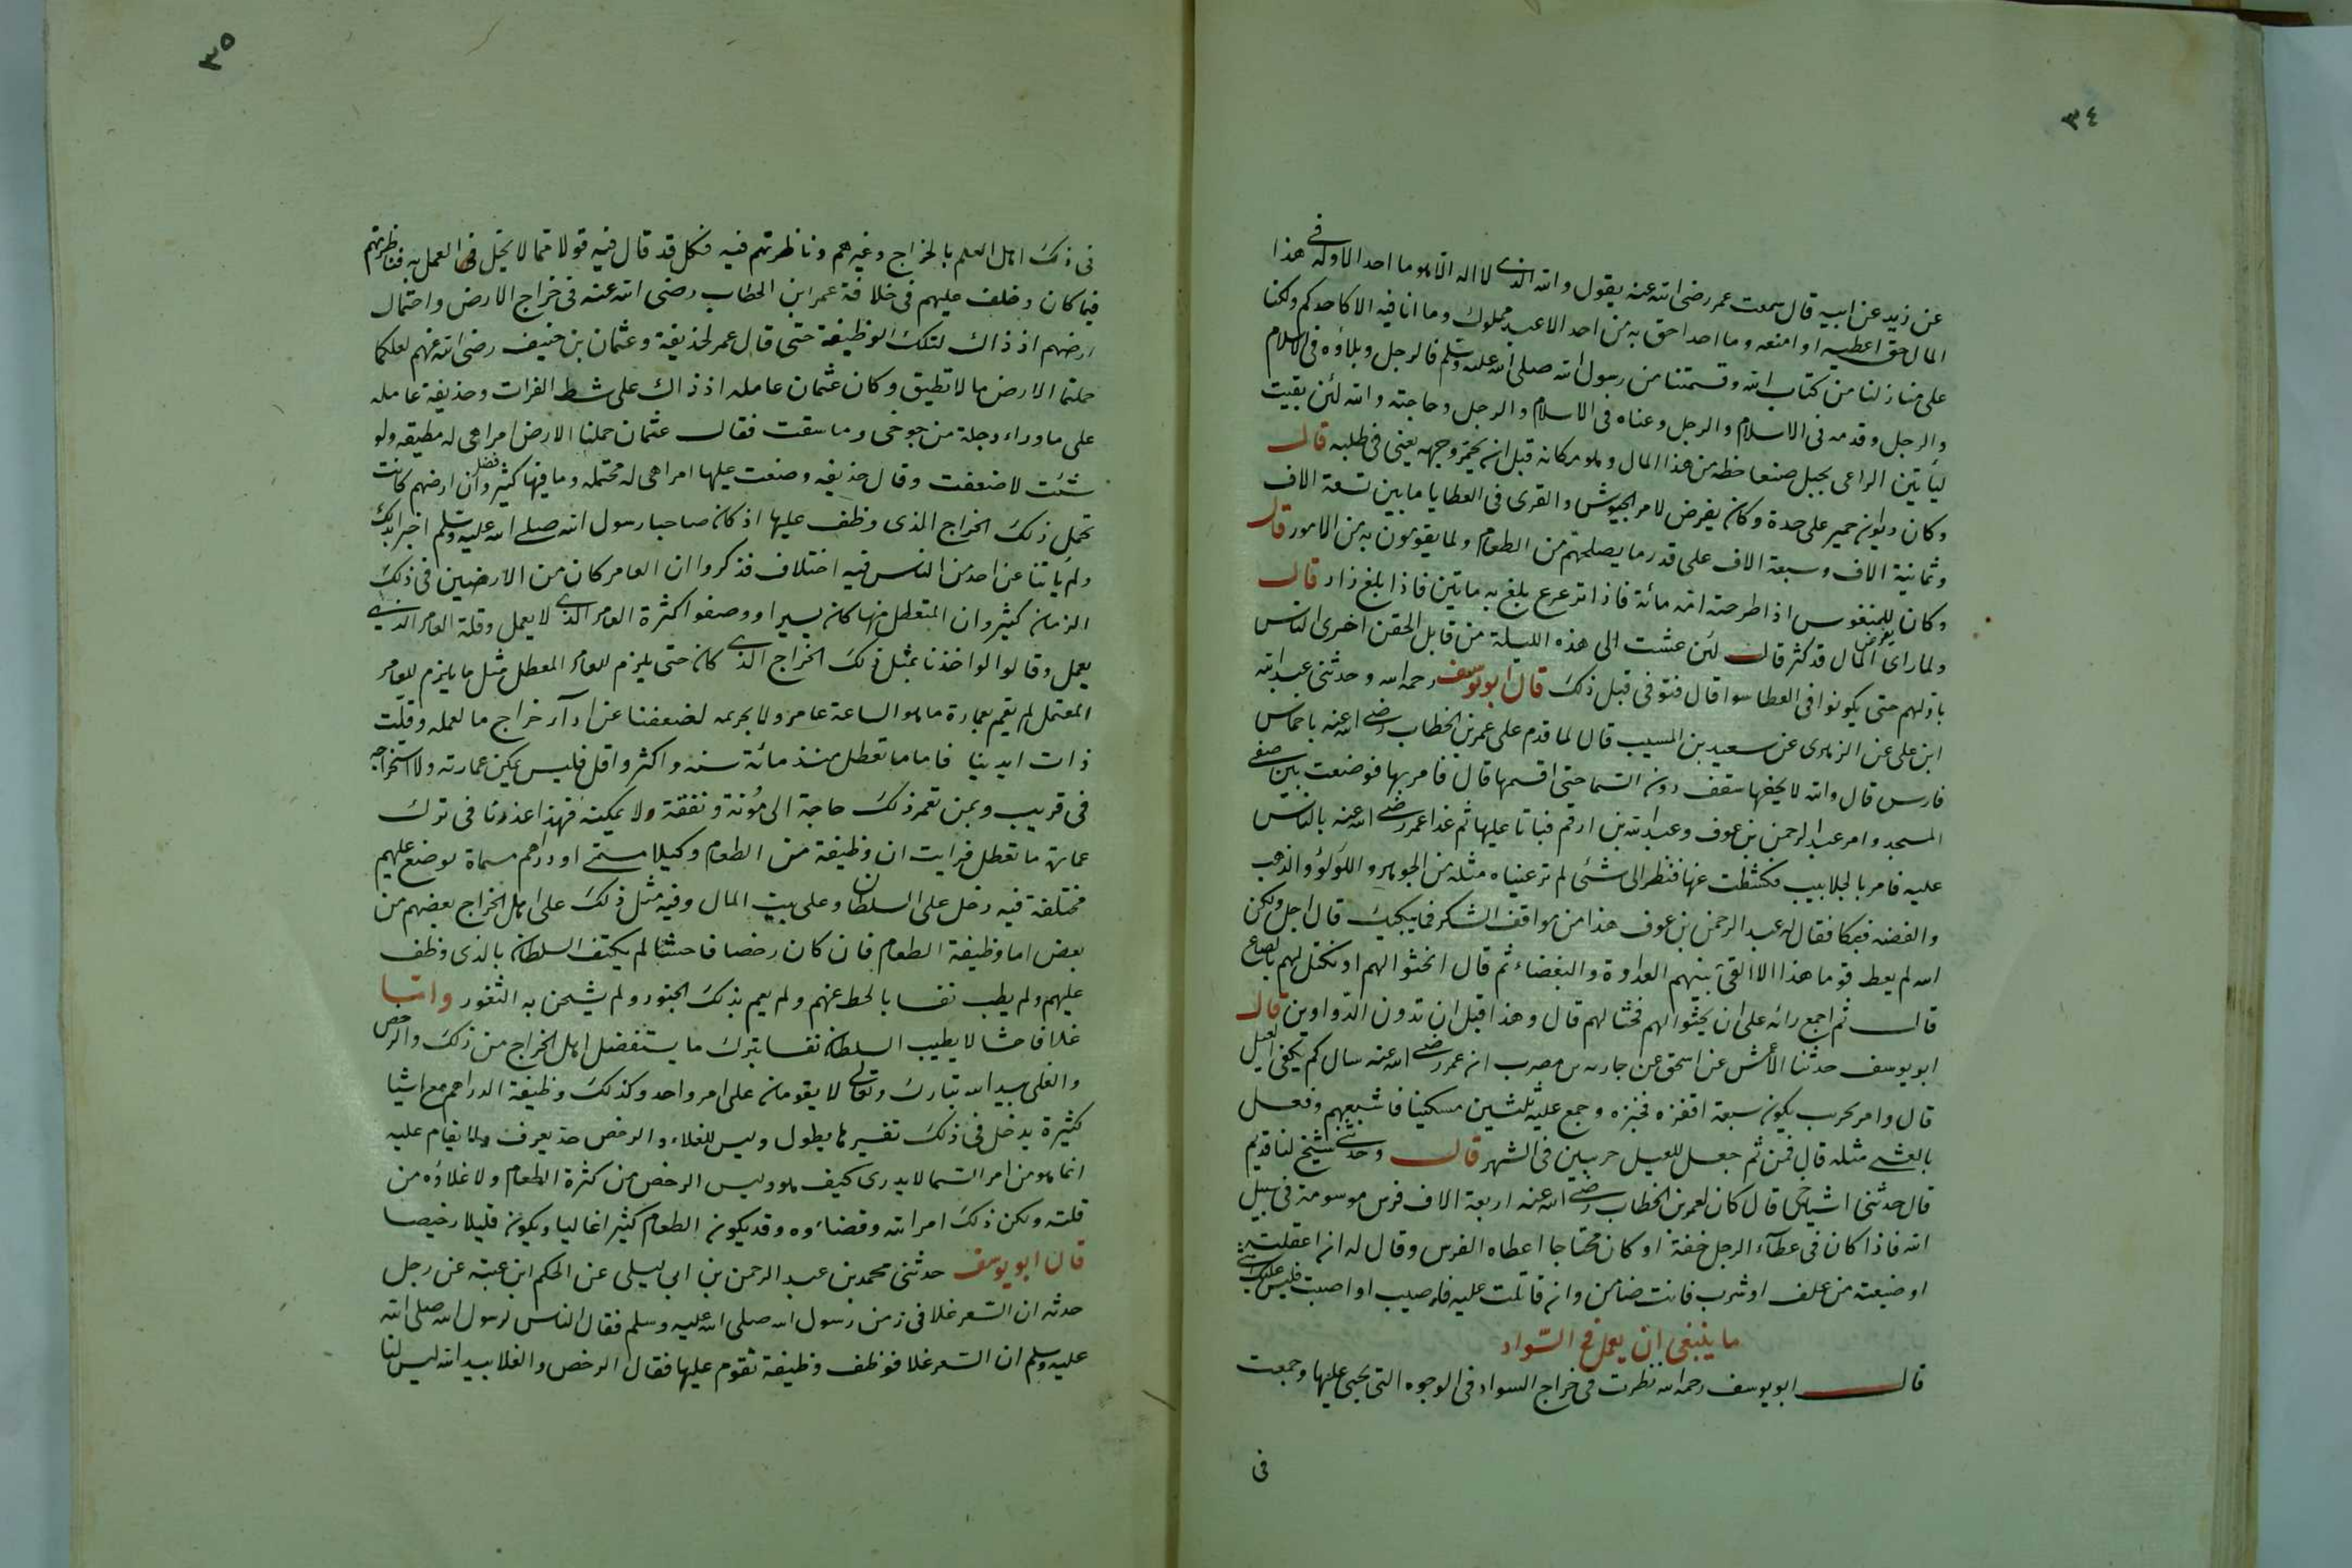 ٣٤
عن زيد عن ابيه قال سمعت عمر رضى الله عنه يقول والله الذى لا اله الا هو ما احد الا وله فى هذا
المال حق اعطيه او امنعه وما احد احق به من احد الا عبد مملوك وما انا فيه الا كاحدكم ولكنا
على منازلنا من كتاب الله وقسمتنا من رسول الله صلى الله عليه وسلم فالرجل وبلاؤه فى الاسلام
والرجل وقدمه فى الاسلام والرجل وغناه فى الاسلام والرجل وحاجته والله لئن بقيت
ليأتين الراعى بجبل صنعا حظه من هذا المال وهو مكانه قبل ان يحمر وجهه يعنى فى طلبه قال
وكان ديوان حمير على حدة وكان يفرض لامر الجيوش والقرى فى العطايا ما بين تسعة الاف
وثمانية الاف وسبعة الاف على قدر ما يصلحهم من الطعام ولما يقومون به من الامور قال
وكان للمنفوس اذا طرحته امه مائة فاذا ترعرع بلغ به مايتين فاذا بلغ زاد قال
ولما راى المال قد كثر قال لئن عشت الى هذه الليلة من قابل الحقن اخرى الناس
باولهم حتى يكونوا فى العطا سوا قال فتوفى قبل ذلك قال ابو يوسف رحمه الله وحدثنى عبد الله
ابن على عن الزهرى عن سعيد بن المسيب قال لما قدم على عمر بن الخطاب رضى الله عنه باخماس
فارس قال والله لا يجنها سقف دون السما حتى اقسمها قال فامر بها فوضعت بين صفى
المسجد وامر عبد الرحمن بن عوف وعبد الله بن ارقم فباتا عليها ثم غدا عمر رضى الله عنه بالناس
عليه فامر بالجلابيب فكشطت عنها فنظر الى شئ لم تر عنياه مثله من الجوهر واللؤلؤ والذهب
والفضه فبكا فقال له عبد الرحمن بن عوف هذا من مواقف الشكر فما يبكيك قال اجل ولكن
الله لم يعط قوما هذا الا القى بينهم العداوة والبغضاء ثم قال انحثوا لهم او نكتل لهم بالصاع
قال ثم اجمع رائه على ان يحثوا لهم فحثا لهم قال وهذا قبل ان تدون الدواوين قال
ابو يوسف حدثنا الاعمش عن اسحق عن جاريه بن مضرب ان عمر رضى الله عنه سال كم يكفى العيل
قال وامر بحرب يكون سبعة اقفزه فخبزه وجمع عليه ثلثين مسكينا فاشبعهم وفعل
بالعشى مثله قال فمن ثم جعل للعيل حربيين فى الشهر قال وحدثنى شيخ لنا قديم
قال حدثنى اشياخى قال كان لعمر بن الخطاب رضى الله عنه اربعة الاف فرس موسومة فى سبيل
الله فاذا كان فى عطآء الرجل خفة او كان محتاجا اعطاه الفرس وقال له ان اعقلته
او ضيعته من علف او شرب فانت ضامن وان قاتلت عليه فاصيب او اصبت فليس عليك شى
ما ينبغى ان يعمل فى السواد
قال ابو يوسف رحمه الله نظرت فى خراج السواد فى الوجوه التى يجبى عليها وجمعت
فى
٣٥
فى ذلك اهل العلم بالخراج وغيرهم وناظرتهم فيه فكل قد قال فيه قولا مما لا يحل العمل به فناظرتهم
فيما كان وظف عليهم فى خلافة عمر ابن الخطاب رضى الله عنه فى خراج الارض واحتمال
ارضهم اذ ذاك لتلك الوظيفة حتى قال عمر لحذيفة وعثمان بن حنيف رضى الله عنهم لعلكما
حملتما الارض ما لا تطيق وكان عثمان عامله اذ ذاك على شط الفرات وحذيفة عامله
على ما وراء دجلة من جوخى وما سقت فقال عثمان حملنا الارض امرا هى له مطيقه ولو
شئت لاضعفت وقال حذيفه وضعت عليها امرا هى له محتمله وما فيها كثير فضل وان ارضهم كانت
تحمل ذلك الخراج الذى وظف عليها اذ كان صاحبا رسول الله صلى الله عليه وسلم اخبرا بذلك
ولم ياتنا عن احد من الناس فيه اختلاف فذكروا ان العامر كان من الارضين فى ذلك
الزمان كثير وان المتعطل منها كان يسيرا ووصفوا كثرة العامر الذى لا يعمل وقلة العامر الذى
يعمل وقالوا لو اخذنا بمثل ذلك الخراج الذى كان حتى يلزم للعامر المعطل مثل ما يلزم للعامر
المعتمل لم نقم بعمارة ما هو الساعة عامر ولا بحرثه لضعفنا عن ادآ خراج ما لعمله وقلت
ذات ايدينا فاما ما تعطل منذ مائة سنه واكثر واقل فليس يمكن عمارته ولا استخراجه
فى قريب وبمن تعمر ذلك حاجة الى مؤنة ونفقة ولا يمكنه فهذا عذرنا فى ترك
عمارة ما تعطل فرايت ان وظيفة من الطعام وكيلا مسمى او دراهم مسماة توضع عليهم
مختلفة فيه دخل على السلطان وعلى بيت المال وفيه مثل ذلك على اهل الخراج بعضهم من
بعض اما وظيفة الطعام فان كان رخصا فاحشا لم يكتف السلطان بالذى وظف
عليهم ولم يطب نفسا بالحط عنهم ولم يعم بذلك الجنود ولم يشحن به الثغور واما
غلا فاحشا لا يطيب السلطان نفسا بترك ما يستفضل اهل الخراج من ذلك والرخص
والغلى بيد الله تبارك وتعالى لا يقومان على امر واحد وكذلك وظيفة الدراهم مع اشيا
كثيرة يدخل فى ذلك تفسيرها يطول وليس للغلاء والرخص حد يعرف ولا يقام عليه
انما هو من امر السما لا يدرى كيف هو وليس الرخص من كثرة الطعام ولا غلاؤه من
قلته ولكن ذلك امر الله وقضاؤه وقد يكون الطعام كثيرا غاليا ويكون قليلا رخيصا
قال ابو يوسف حدثنى محمد بن عبد الرحمن بن ابى ليلى عن الحكم ابن عتبه عن رجل
حدثه ان السعر غلا فى زمن رسول الله صلى الله عليه وسلم فقال الناس لرسول الله صلى الله
عليه وسلم ان السعر غلا فوظف وظيفة نقوم عليها فقال الرخص والغلا بيد الله ليس لنا